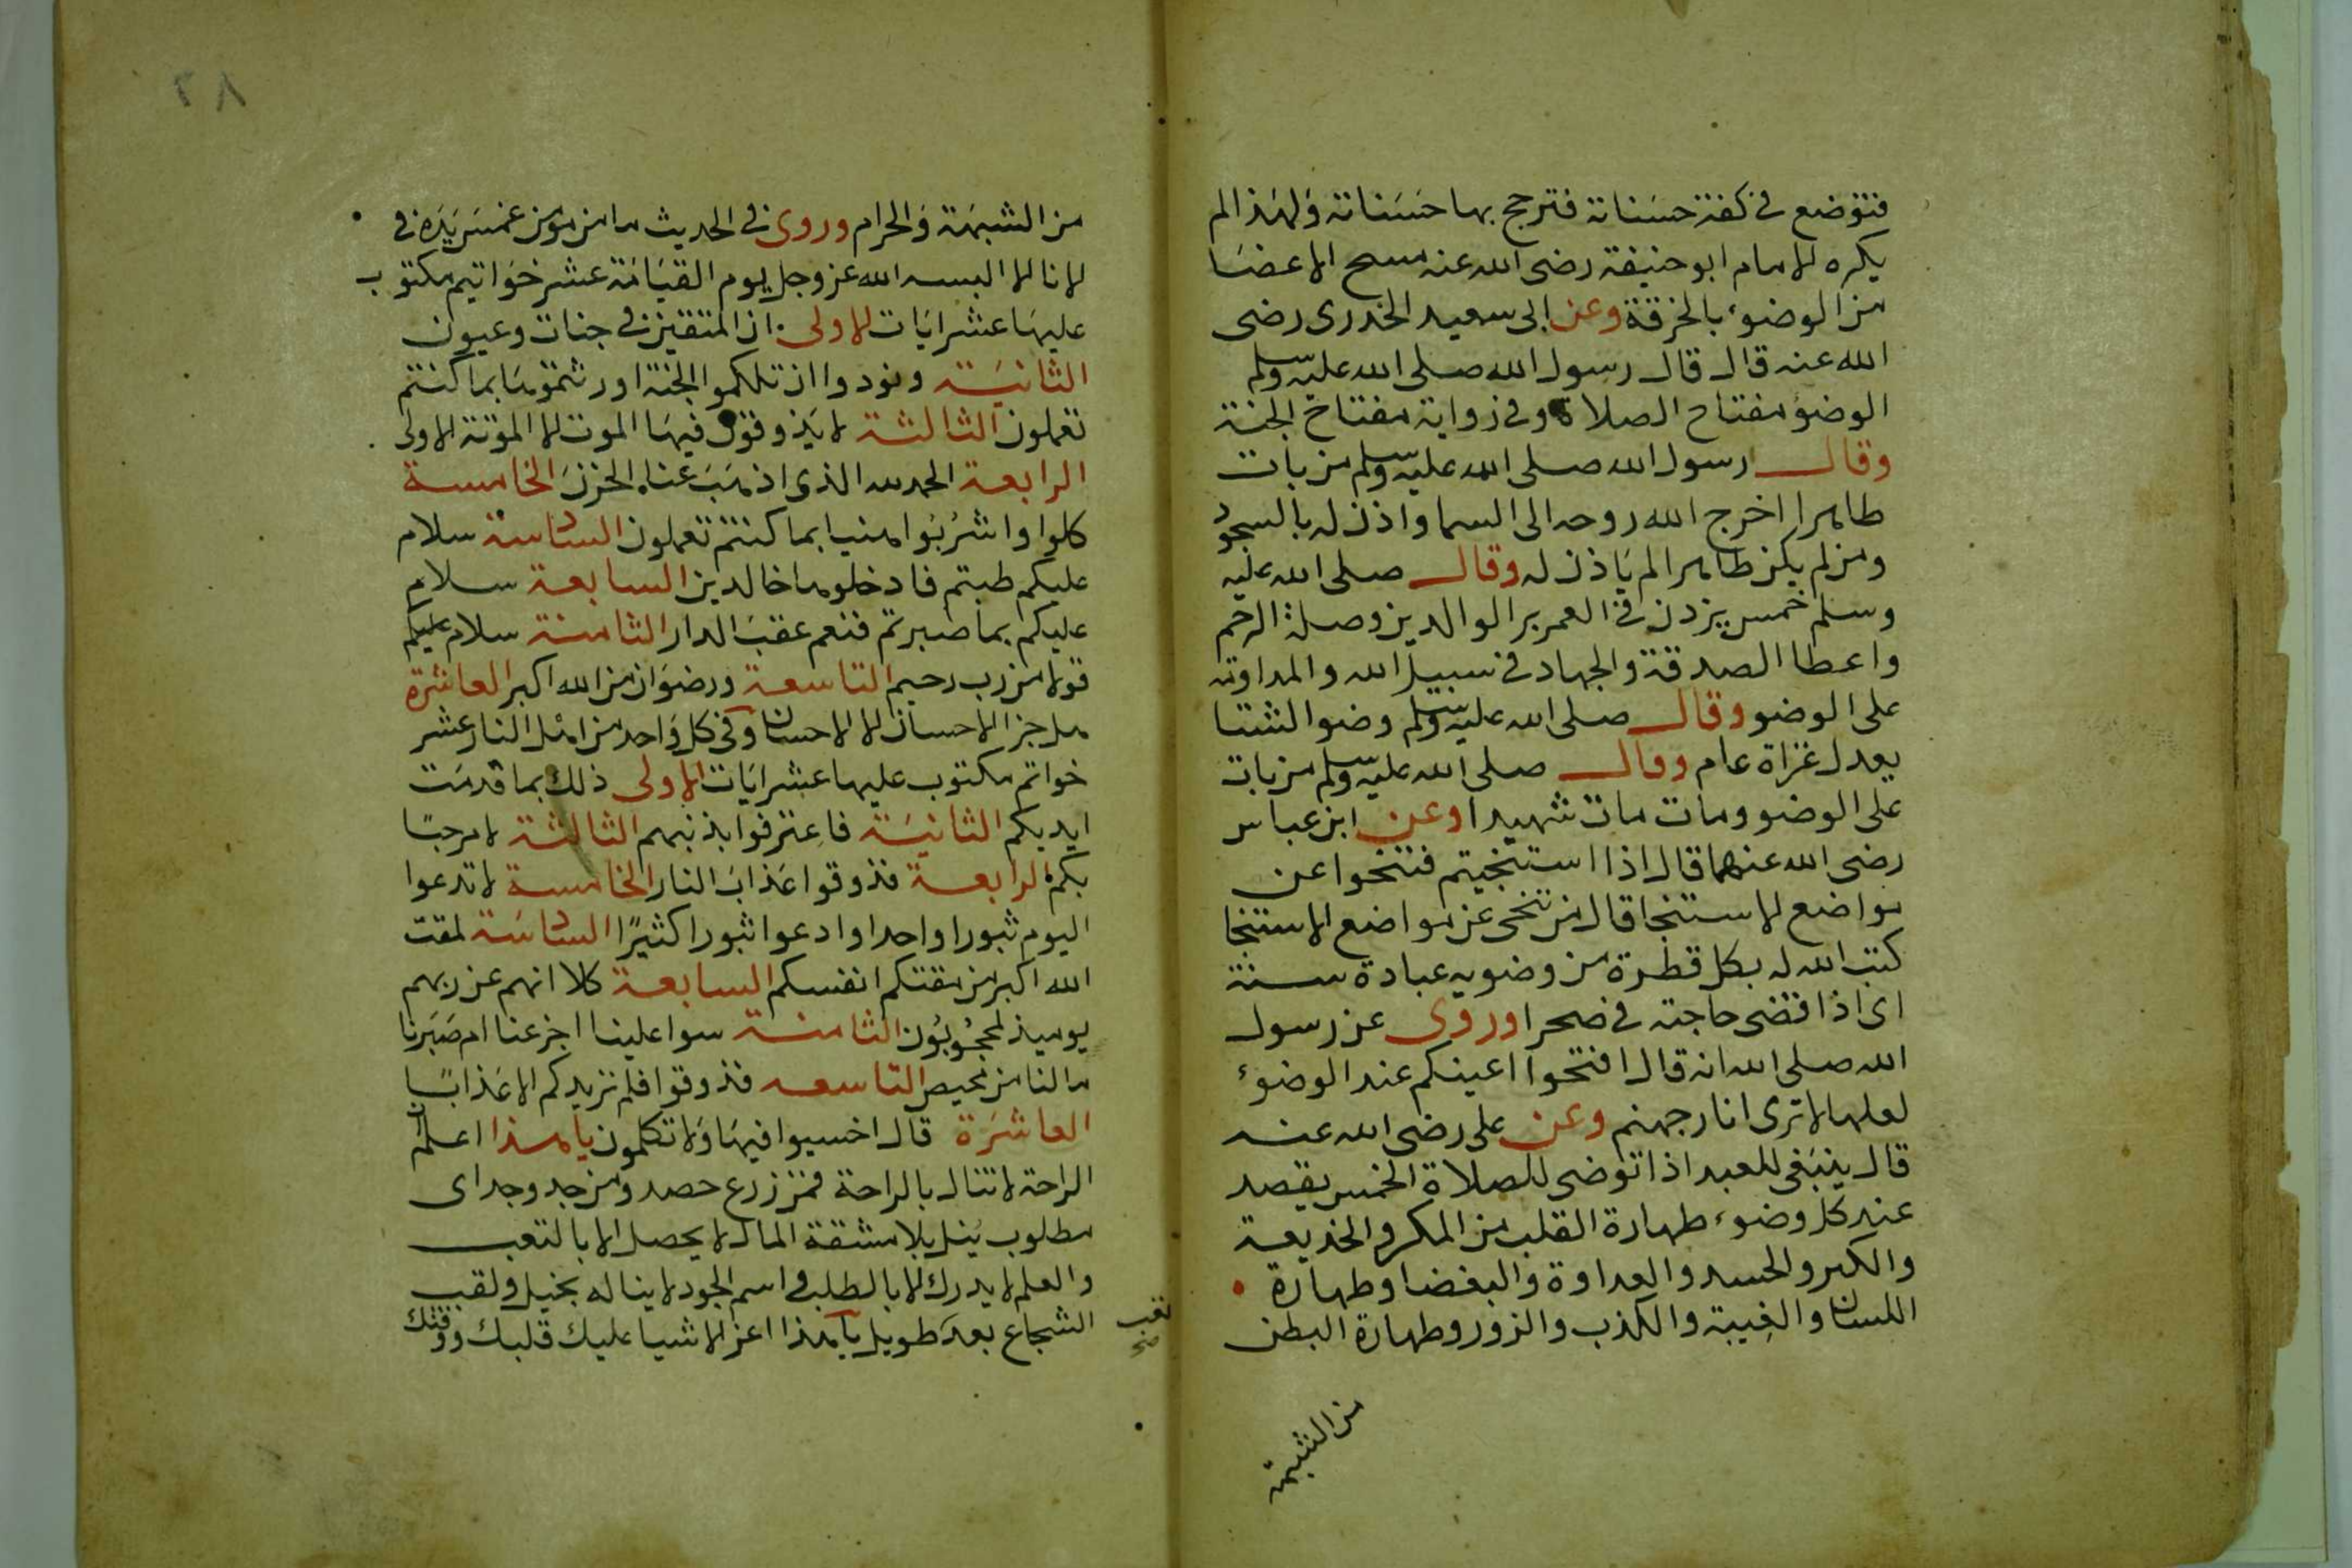 فتوضع في كفة حسناته فترجح بها حسناته ولهذا لم
يكره الامام ابو حنيفة رضى الله عنه مسح الاعضا
من الوضوء بالخرقة وعن ابى سعيد الخدرى رضى
الله عنه قال قال رسول الله صلى الله عليه وسلم
الوضو مفتاح الصلاة وفى رواية مفتاح الجنة
وقال رسول الله صلى الله عليه وسلم من بات
طاهرا اخرج الله روحه الى السما واذن له بالسجود
ومن لم يكن طاهرا لم ياذن له وقال صلى الله عليه
وسلم خمس يزدن في العمر بر الوالدين وصلة الرحم
واعطا الصدقة والجهاد في سبيل الله والمداومة
على الوضو وقال صلى الله عليه وسلم وضو الشتا
يعدل غزاة عام وقال صلى الله عليه وسلم من بات
على الوضو ومات مات شهيدا وعن ابن عباس
رضى الله عنهما قال اذا استنجيتم فتنحوا عن
مواضع الاستنجا قال من تنحى عن مواضع الاستنجا
كتب الله له بكل قطرة من وضويه عبادة سنة
اى اذا قضى حاجته في صحرا وروى عن رسول
الله صلى الله انه قال افتحوا اعينكم عند الوضوء
لعلها لا ترى انار جهنم وعن على رضى الله عنه
قال ينبغى للعبد اذا توضى للصلاة الخمس يقصد
عند كل وضوء طهارة القلب من المكر والخديعة
والكبر والحسد والعداوة والبغضا وطهارة
اللسان والغيبة والكذب والزور وطهارة البطن
من الشبهة
٢٨
من الشبهة والحرام وروى في الحديث ما من مومن غمس يده في
الانا الا البسه الله عز وجل يوم القيامة عشر خواتيم مكتوب
عليها عشر ايات الاولى ان المتقين في جنات وعيون
الثانية ونودوا ان تلكموا الجنة اورثتموها بما كنتم
تعملون الثالثة لا يذوقون فيها الموت الا الموتة الاولى
الرابعة الحمد لله الذى اذهب عنا الحزن الخامسة
كلوا واشربوا هنيا بما كنتم تعملون السادسة سلام
عليكم طبتم فادخلوها خالدين السابعة سلام
عليكم بما صبرتم فنعم عقب الدار الثامنة سلام عليكم
قولا من رب رحيم التاسعة ورضوان من الله اكبر العاشرة
هل جزا الاحسان الا الاحسان وفي كل واحد من اهل النار عشر
خواتم مكتوب عليها عشر ايات الاولى ذلك بما قدمت
ايديكم الثانية فاعترفوا بذنبهم الثالثة لا مرحبا
بكم الرابعة فذوقوا عذاب النار الخامسة لا تدعوا
اليوم ثبورا واحدا وادعوا ثبورا كثيرا السادسة لمقت
الله اكبر من مقتكم انفسكم السابعة كلا انهم عن ربهم
يوميذ لمحجوبون الثامنة سوا علينا اجزعنا ام صبرنا
ما لنا من محيص التاسعه فذوقوا فلم نزيدكم الا عذابا
العاشرة قال اخسيوا فيها ولا تكلمون يا هذا اعلم ان
الراحة لا تنال بالراحة فمن زرع حصد ومن جد وجد اى
مطلوب ينل بلا مشقة المال لا يحصل الا بالتعب
والعلم لا يدرك الا بالطلب واسم الجود لا يناله بخيل ولقب
الشجاع بعد طويل يا هذا اعز الاشيا عليك قلبك ووقتك
تعب